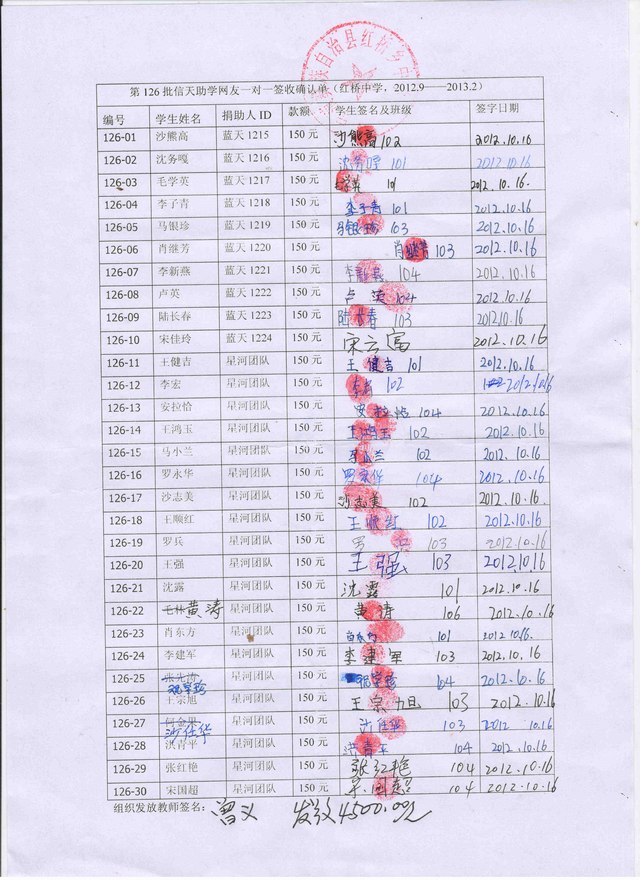 自治县红桥乡中
第 126 批信天助学网友一对一签收确认单（红桥中学，2012.9——2013.2）
编号 学生姓名 捐助人 ID 款额 学生签名及班级 签字日期
126-01 沙熊高 蓝天 1215 150 元 沙熊高 102 2012.10.16
126-02 沈务嘎 蓝天 1216 150 元 沈务嘎 101 2012.10.16
126-03 毛学英 蓝天 1217 150 元 101 2012.10.16.
126-04 李子青 蓝天 1218 150 元 李子青 101 2012.10.16
126-05 马银珍 蓝天 1219 150 元 马银珍 103 2012.10.16
126-06 肖继芳 蓝天 1220 150 元 肖继芳 103 2012.10.16
126-07 李新燕 蓝天 1221 150 元 李新燕 104 2012.10.16
126-08 卢英 蓝天 1222 150 元 卢英 104 2012.10.16
126-09 陆长春 蓝天 1223 150 元 陆长春 103 2012.10.16
126-10 宋佳玲 蓝天 1224 150 元 宋云富 2012.10.16
126-11 王健吉 星河团队 150 元 王健吉 101 2012.10.16
126-12 李宏 星河团队 150 元 李宏 102 2012.10.16
126-13 安拉恰 星河团队 150 元 安拉恰 104 2012.10.16
126-14 王鸿玉 星河团队 150 元 王鸿玉 102 2012.10.16
126-15 马小兰 星河团队 150 元 102 2012.10.16
126-16 罗永华 星河团队 150 元 罗永华 104 2012.10.16
126-17 沙志美 星河团队 150 元 沙志美 102 2012.10.16
126-18 王顺红 星河团队 150 元 王顺红 102 2012.10.16
126-19 罗兵 星河团队 150 元 罗兵 103 2012.10.16
126-20 王强 星河团队 150 元 王强 103 2012.10.16
126-21 沈露 星河团队 150 元 沈露 101 2012.10.16
126-22 毛林 黄涛 星河团队 150 元 黄涛 106 2012.10.16
126-23 肖东方 星河团队 150 元 肖东方 101 2012.10.16.
126-24 李建军 星河团队 150 元 李建军 103 2012.10.16
126-25 星河团队 150 元 104 2012.10.16
126-26 王宗旭 星河团队 150 元 王宗旭 103 2012.10.16
126-27 沙任华 星河团队 150 元 沙任华 103 2012 10.16
126-28 洪青平 星河团队 150 元 洪青平 104 2012.10.16
126-29 张红艳 星河团队 150 元 张红艳 104 2012.10.16
126-30 宋国超 星河团队 150 元 宋国超 104 2012.10.16
组织发放教师签名： 曾义 发放4500.00元